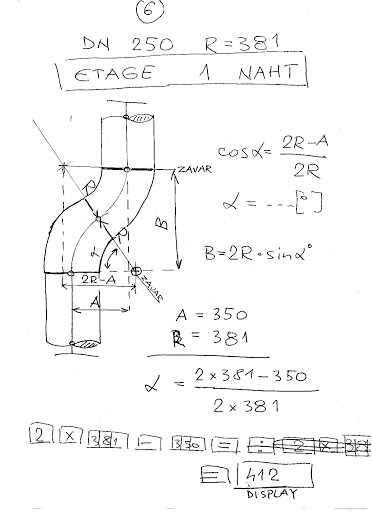 6
DN 250 R=381
ETAGE 1 NAHT
ZAVAR
R
R
B
α
2R-A
ZAVAR
A
cosα = 2R-A / 2R
α = ---- [°]
B=2R·sinα°
A = 350
R = 381
α = 2×381-350 / 2×381
2 × 381 - 350 = ÷ 2 × 381
= 412
DISPLAY